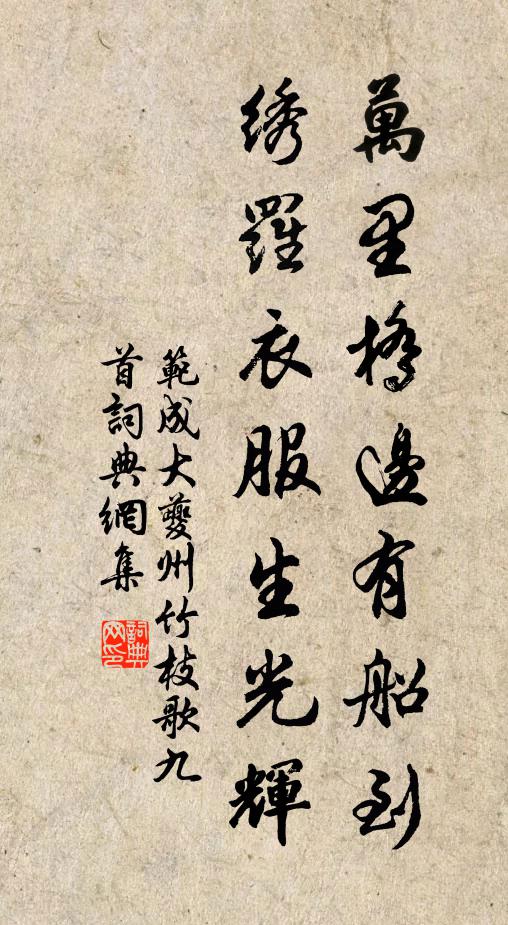 萬里橋邊有船到
绣羅衣服生光輝
範成大夔州竹枝歌九
首詞典網集
詞典
网印